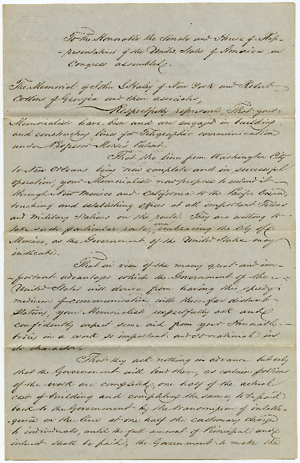 To the Honorable the Senate and House of Rep-
-resentatives of the United States of America in
Congress assembled.
The Memorial of John J. Haley of New York and Robert
Collins of Georgia and their associates,
Respectfully represents, That your
Memorialists have been and are engaged in building
and constructing lines for Telegraphic communication
under Professor Morse's Patent.
That the line from Washington City
to New Orleans being now complete and in successful
operation, your Memorialists now propose to extend it
through New Mexico and California to the Pacific Ocean,
touching and establishing offices at all important Towns
and Military Stations on the route. They are willing to
take such particular route, embracing the City of
Mexico, as the Government of the United States may
indicate.
That in view of the many great and im-
portant advantages which the Government of the
United States will derive from having this speedy
medium of communication with these far distant
Stations, your Memorialists respectfully ask and
confidently expect some aid from your Honorable
bodies in a work so important and so national in
its character.
That they ask nothing in advance but only
that the Government will lend them, as certain portions
of the work are completed, one half of the actual
cost of building and completing the same, to be paid
back to the Government by the transmission of intelli-
gence on the line at one half the customary charge
to individuals, until the full amount of Principal and
interest shall be paid; the Government to make the